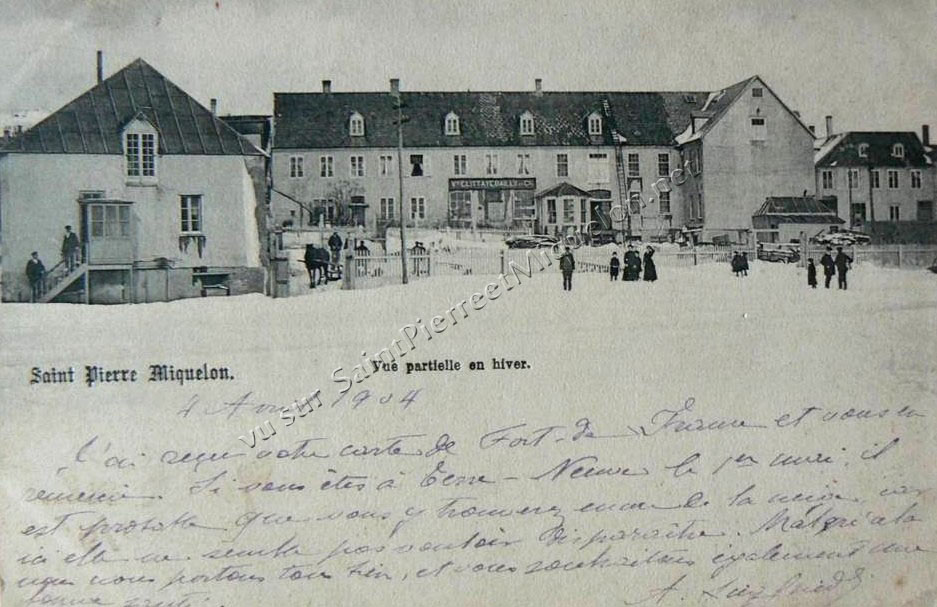 Vve CLITTAYEDAILLY & Cie
Saint Pierre Miquelon.
Vue partielle en hiver.
vu sur SaintPierreetMiquelon.net
4 Avril 1904
J'ai reçu votre carte de Fort-de France et vous en
remercie. Si vous êtes à Terre-Neuve le 1er mai, il
est probable que vous y trouverez encore de la neige car
ici elle ne semble pas vouloir disparaître. Malgré cela
nous nous portons tous bien, et vous souhaitons également une
bonne santé.
A.